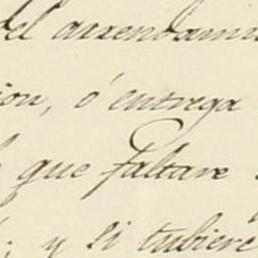 del arrendami
ion, ó entrega
que faltare
; y si tubiere